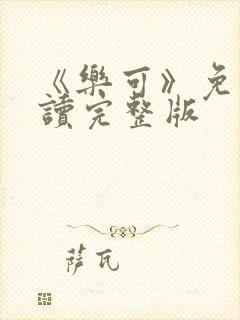 《樂可》免
讀完整版
萨瓦